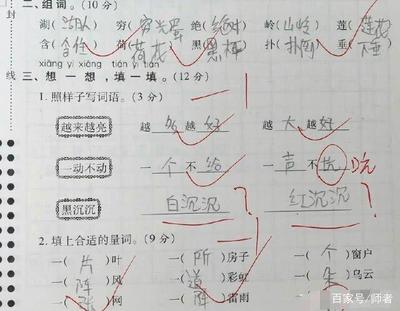 封
二、组词。(10分)
湖(湖人) 穷(穷光蛋) 绝(绝对) 岭(山岭) 莲(莲花)
含(含住) 荷(荷花) 黑(黑棒) 扑(扑倒) 垂(下垂)
xiǎng yi xiǎng tián yi tián
线
三、想一想,填一填。(12分)
1. 照样子写词语。(3分)
越来越亮 越多越好 越大越好
一动不动 一个不给 一声不坑 吭
黑沉沉 白沉沉 ? 红沉沉 ?
2. 填上合适的量词。(9分)
一(片)叶 一(所)房子 一(个)窗户
一(阵)风 一(道)彩虹 一(朵)乌云
一(张)网 一(阵)雷雨
百家号/师者